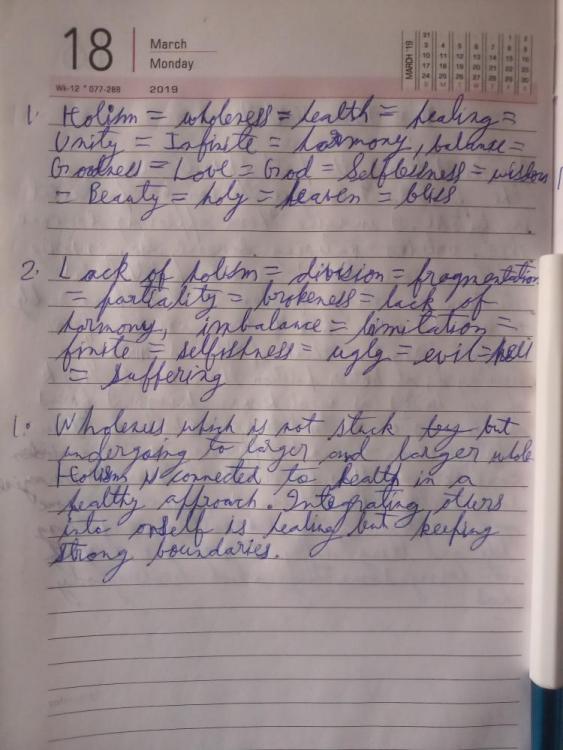 18
March
Monday
Wk-12 * 077-288
2019
MARCH '19
1. Holism = wholeness = health = healing =
Unity = Infinite = harmony, balance =
Goodness = Love = God = Selflessness = wisdom
= Beauty = holy = heaven = bliss
2. Lack of holism = division = fragmentation
= partiality = brokeness = lack of
harmony, imbalance = limitation =
finite = selfishness = ugly = evil = hell
= suffering
1. Wholeness which is not stuck but
undergoing to larger and larger whole
Holism is connected to health in a
healthy approach. Integrating others
into onself is healing but keeping
strong boundaries.